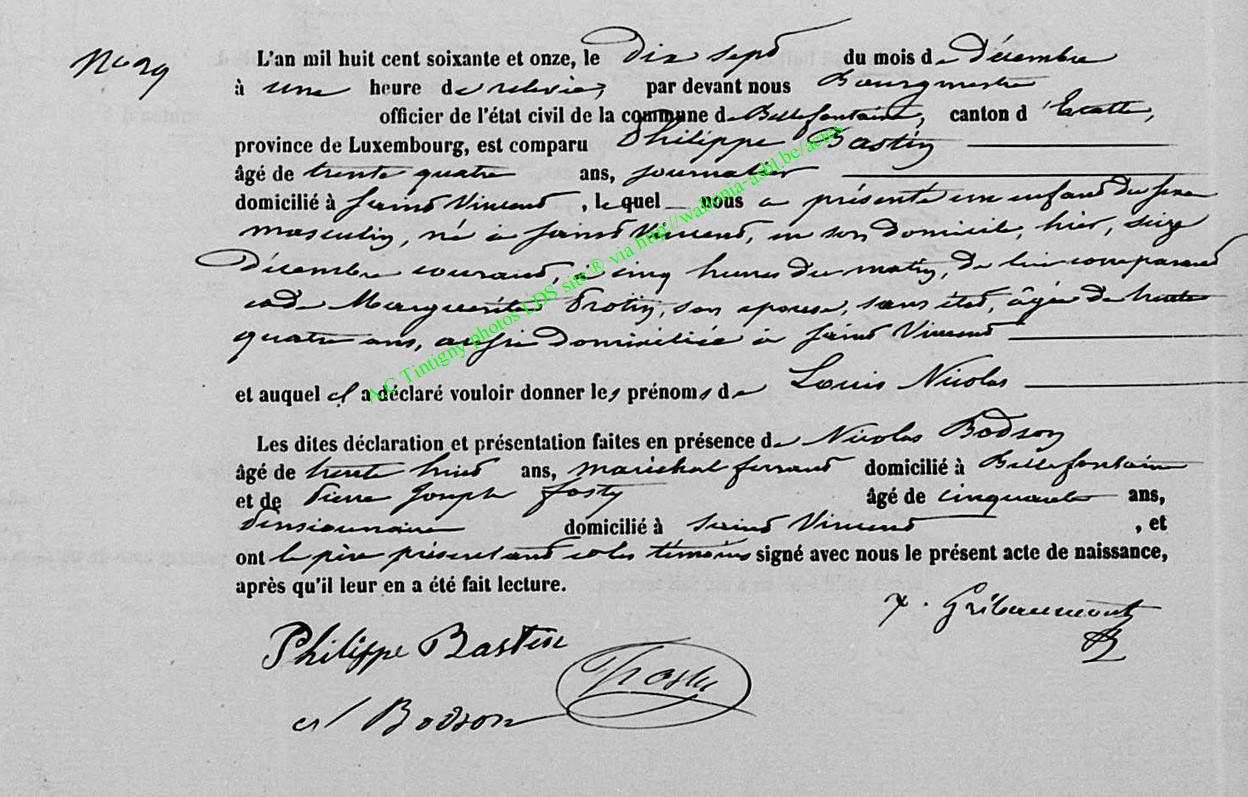 N° 29
L'an mil huit cent soixante et onze, le dix sept du mois de Décembre
à une heure de relevée, par devant nous Bourgmestre
officier de l'état civil de la commune de Bellefontaine, canton d'Etalle,
province de Luxembourg, est comparu Philippe Bastin
âgé de trente quatre ans, journalier
domicilié à Saint Vincent, le quel nous a présenté un enfant du sexe
masculin, né à Saint Vincent, en son domicile, hier, seize
Décembre courant, à cinq heures du matin, de lui comparant
et de Marguerite Protin, son épouse, sans état, âgée de trente
quatre ans, aussi domiciliée à Saint Vincent
et auquel il a déclaré vouloir donner les prénoms de Louis Nicolas
Les dites déclaration et présentation faites en présence de Nicolas Bodson
âgé de trente huit ans, maréchal ferrant domicilié à Bellefontaine
et de Pierre Joseph Fosty âgé de cinquante ans,
Pensionnaire domicilié à Saint Vincent, et
ont le père présentant et les témoins signé avec nous le présent acte de naissance,
après qu'il leur en a été fait lecture.
Gribaumont
Philippe Bastin
Fosty
Bodson
AC Tintigny photos LDS site ® via http://wallonia-asbl.be/actes